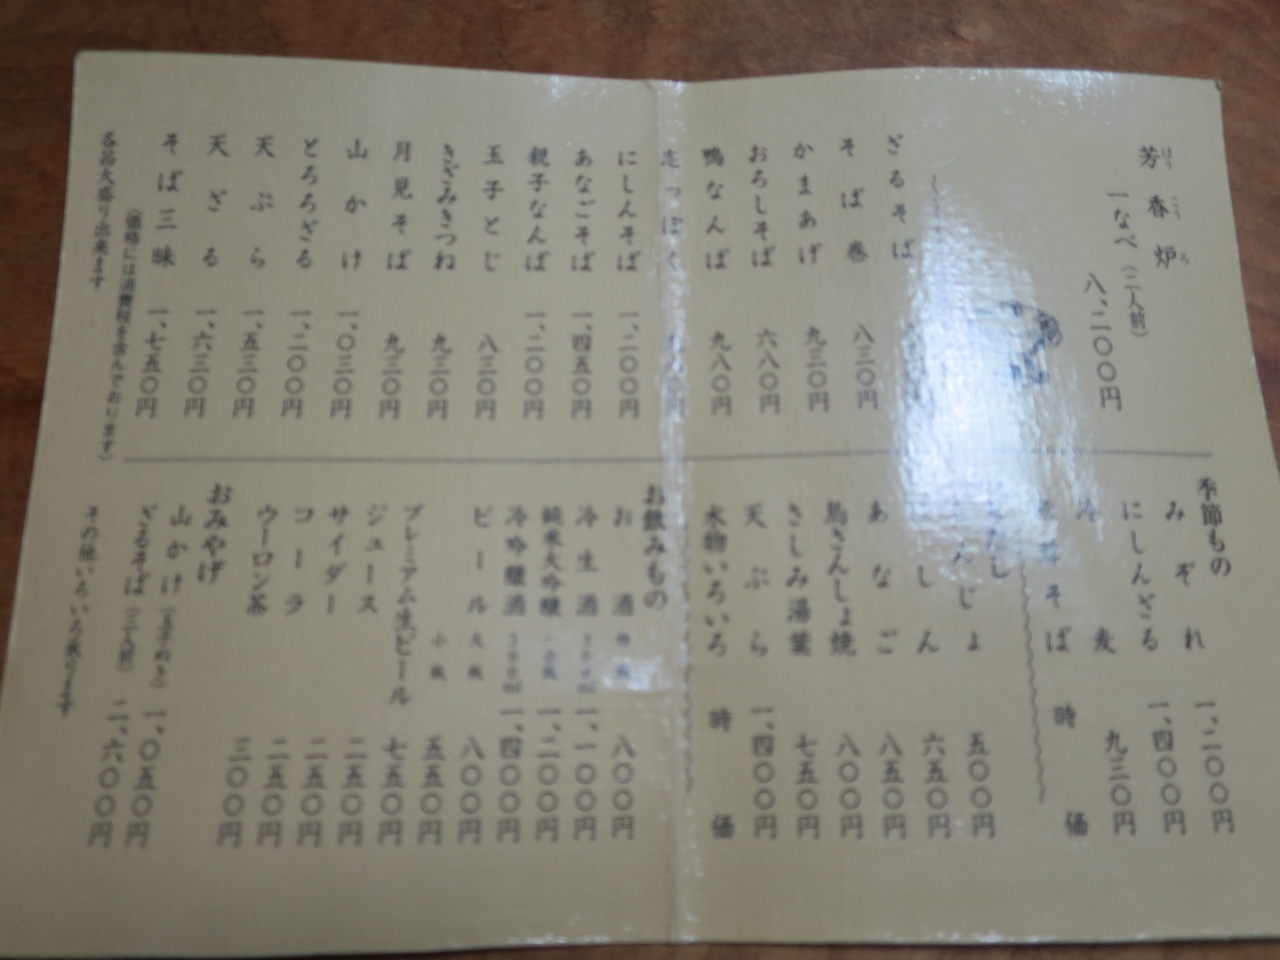 芳香炉
ほうこうろ
一なべ(二人前)
八、二〇〇円
ざるそば
そば巻 八三〇円
かまあげ 九三〇円
おろしそば 六八〇円
鴨なんば 九八〇円
にしんそば 一、二〇〇円
あなごそば 一、四五〇円
親子なんば 一、二〇〇円
玉子とじ 八三〇円
きざみきつね 九三〇円
月見そば 九三〇円
山かけ 一、〇三〇円
とろろざる 一、二〇〇円
天ぷら 一、五三〇円
天ざる 一、六三〇円
そば三昧 一、七五〇円
(価格には消費税を含んでおります)
各品大盛り出来ます
季節もの
みぞれ 一、二〇〇円
にしんざる 一、四〇〇円
麦 九三〇円
そば 時価
五〇〇円
しん 六五〇円
あなご 八五〇円
鳥さんしょ焼 八〇〇円
さしみ湯葉 七五〇円
天ぷら 一、四〇〇円
水物いろいろ 時価
お飲みもの
お酒 八〇〇円
冷生酒 300ml 一、一〇〇円
純米大吟醸 一合瓶 一、二〇〇円
冷吟醸酒 300ml 一、四〇〇円
ビール 大瓶 八〇〇円
小瓶 五五〇円
プレミアム生ビール 七五〇円
ジュース 二五〇円
サイダー 二五〇円
コーラ 二五〇円
ウーロン茶 三〇〇円
おみやげ
山かけ(玉子ぬき) 一、〇五〇円
ざるそば(三人前) 二、六〇〇円
その他いろいろ承ります